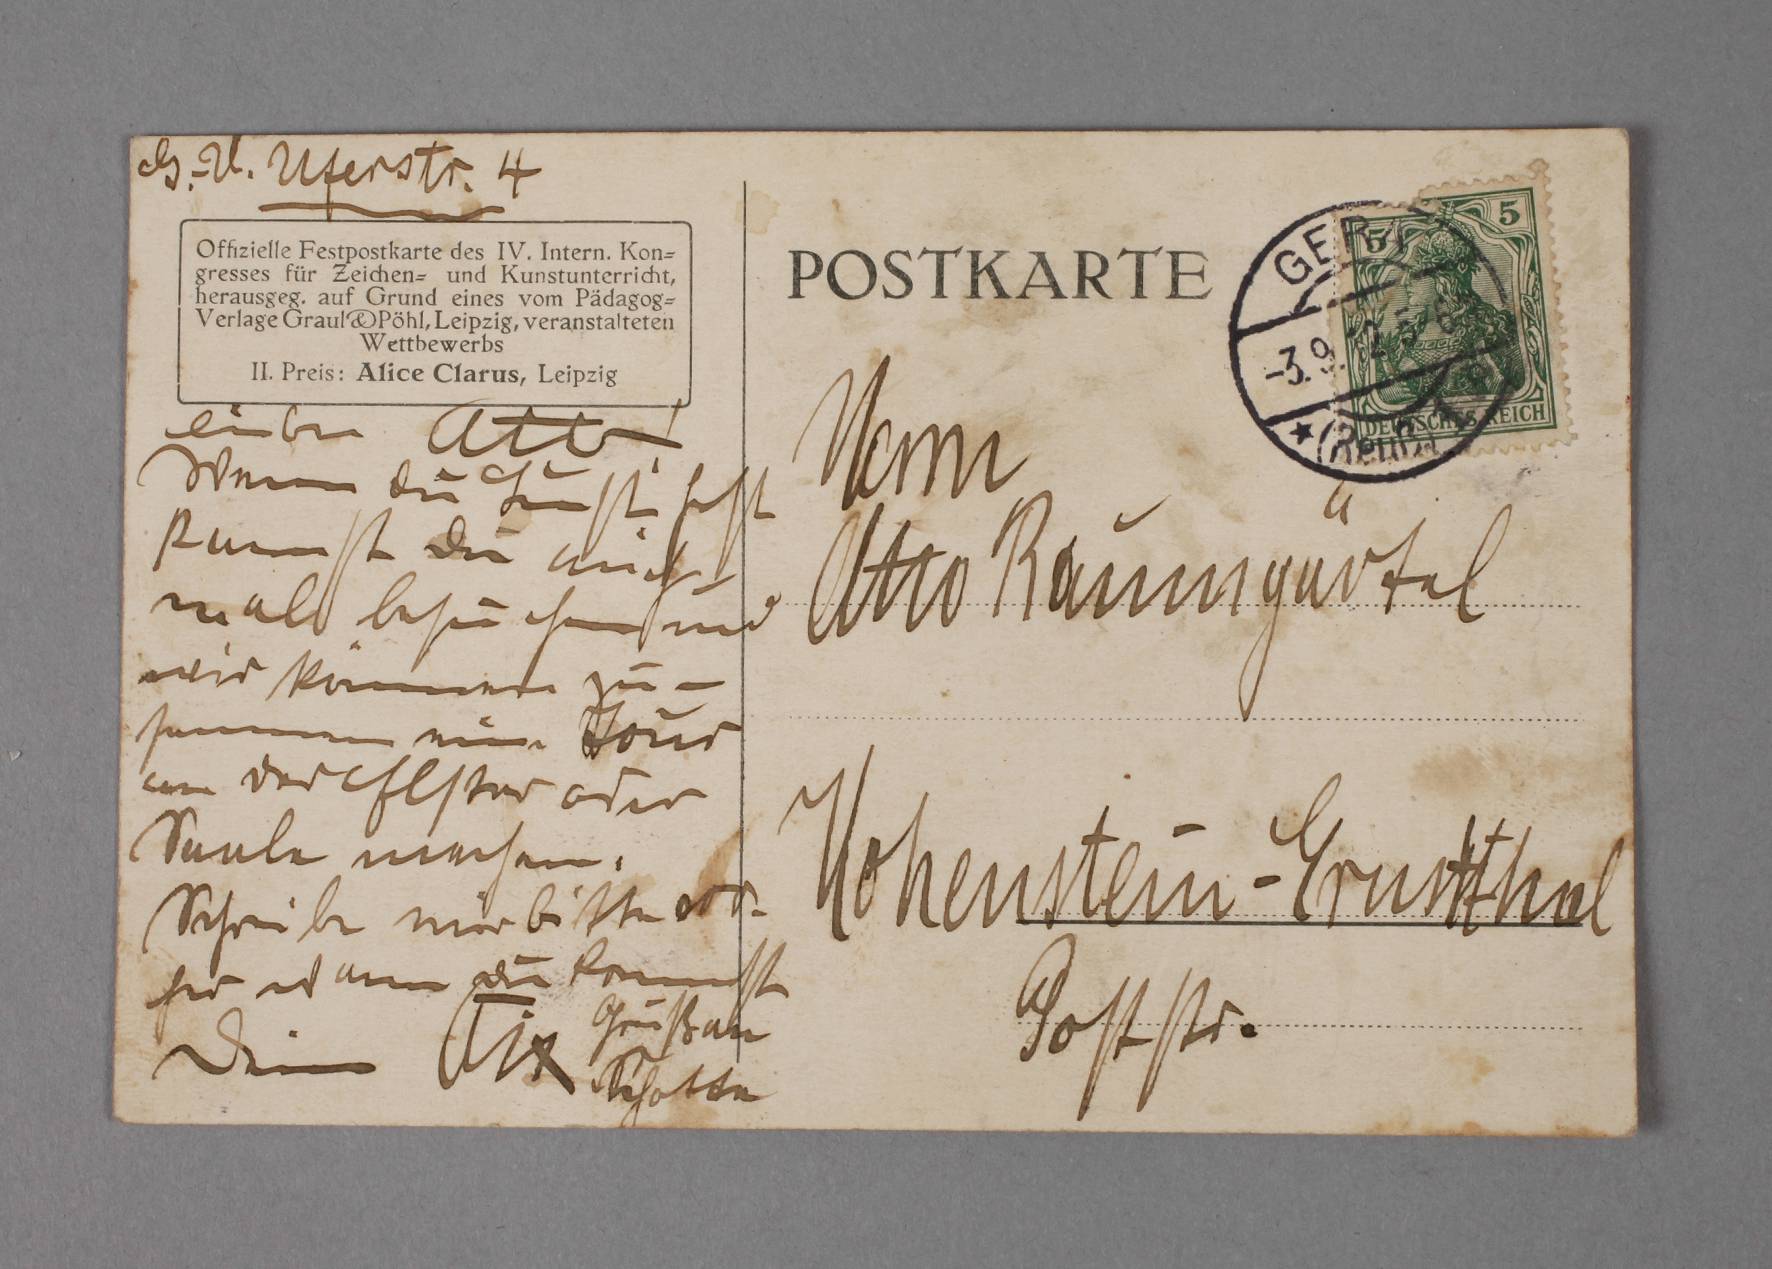 G.-U. Uferstr. 4
Offizielle Festpostkarte des IV. Intern. Kon=
gresses für Zeichen= und Kunstunterricht,
herausgeg. auf Grund eines vom Pädagog=
Verlage Graul & Pöhl, Leipzig, veranstalteten
Wettbewerbs
II. Preis: Alice Clarus, Leipzig
Lieber Otto!
Wenn du Lust hast
kannst Du mich
mal besuchen und
wir können zu-
sammen eine Tour
an der Elster oder
Saale machen.
Schreibe mir bitte vor-
her wann du kommst
Dein Dix
Gruß an
Schotte
POSTKARTE
GERA
-3.9.12.5-6
★ (Reuß)
5 5
DEUTSCHES REICH
Herrn
Otto Baumgärtel
Hohenstein-Ernstthal
Poststr.